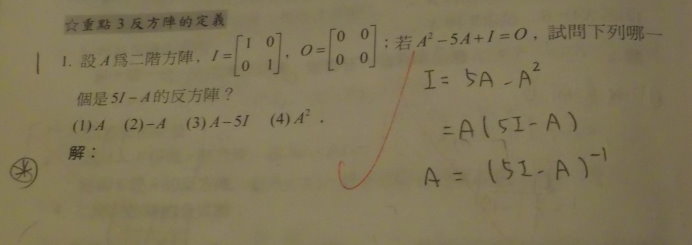 ☆重點3反方陣的定義
1. 設A為二階方陣，I=[1 0; 0 1]，O=[0 0; 0 0]；若A²-5A+I=O，試問下列哪一
個是5I-A的反方陣？
(1)A (2)-A (3)A-5I (4)A²．
解：
I = 5A - A²
=A(5I-A)
A = (5I-A)⁻¹